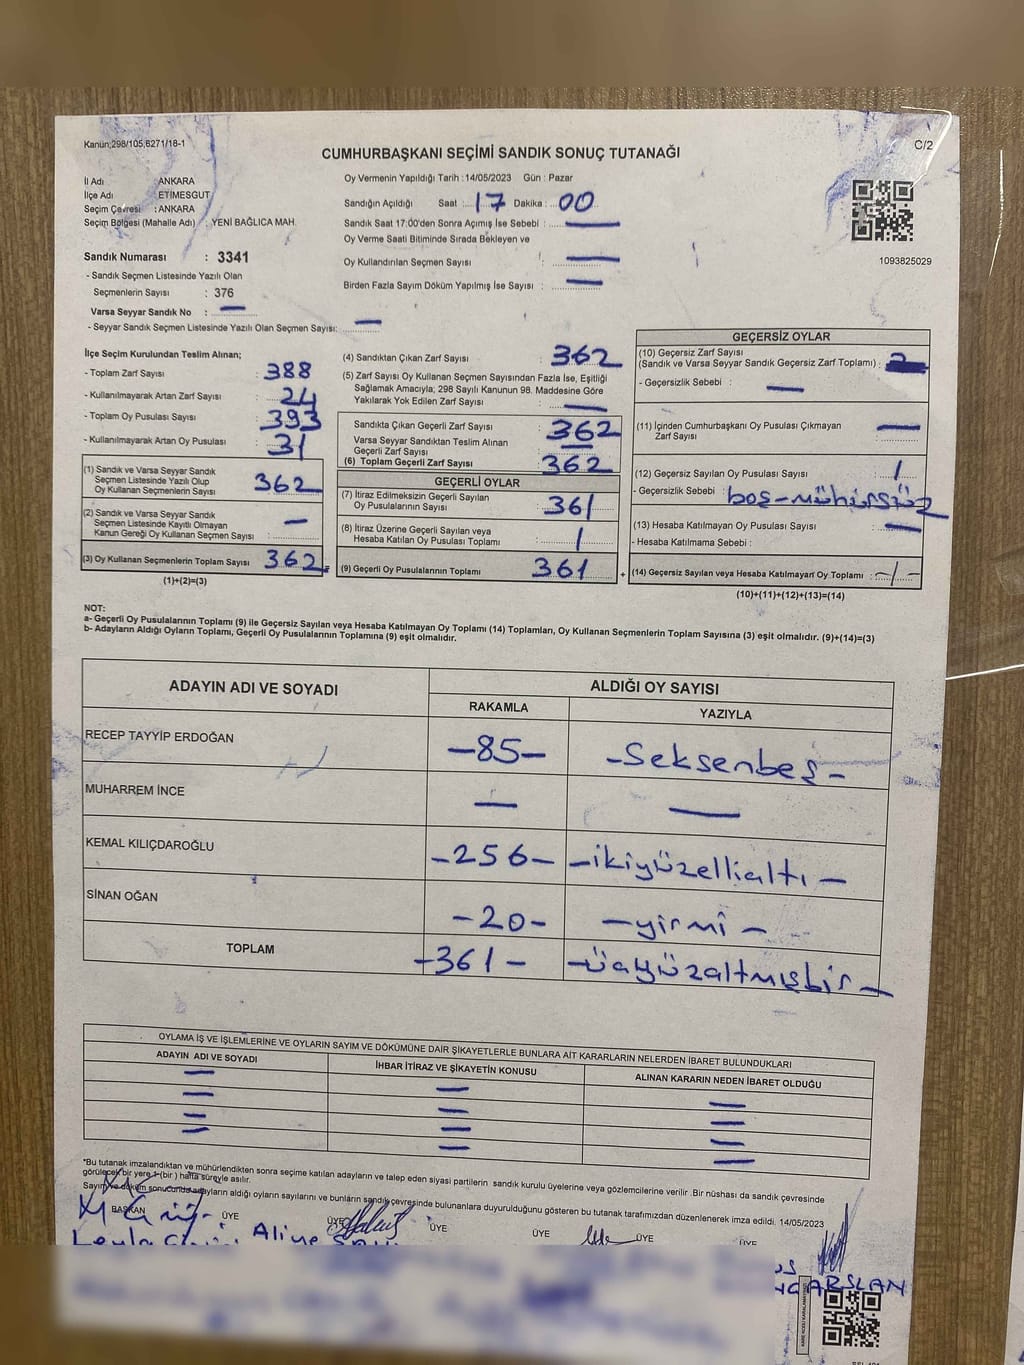 Kanun;298/105,6271/18-1
C/2
CUMHURBAŞKANI SEÇİMİ SANDIK SONUÇ TUTANAĞI
İl Adı : ANKARA
İlçe Adı : ETİMESGUT
Seçim Çevresi : ANKARA
Seçim Bölgesi (Mahalle Adı) : YENİ BAĞLICA MAH.
Sandık Numarası : 3341
- Sandık Seçmen Listesinde Yazılı Olan
Seçmenlerin Sayısı : 376
Varsa Seyyar Sandık No : —
- Seyyar Sandık Seçmen Listesinde Yazılı Olan Seçmen Sayısı: —
Oy Vermenin Yapıldığı Tarih : 14/05/2023 Gün : Pazar
Sandığın Açıldığı Saat : 17 Dakika : 00
Sandık Saat 17:00'den Sonra Açımış İse Sebebi : —
Oy Verme Saati Bitiminde Sırada Bekleyen ve
Oy Kullandırılan Seçmen Sayısı : —
Birden Fazla Sayım Döküm Yapılmış İse Sayısı : —
1093825029
İlçe Seçim Kurulundan Teslim Alınan;
- Toplam Zarf Sayısı : 388
- Kullanılmayarak Artan Zarf Sayısı : 24
- Toplam Oy Pusulası Sayısı : 393
- Kullanılmayarak Artan Oy Pusulası : 31
(1) Sandık ve Varsa Seyyar Sandık
Seçmen Listesinde Yazılı Olup
Oy Kullanan Seçmenlerin Sayısı : 362
(2) Sandık ve Varsa Seyyar Sandık
Seçmen Listesinde Kayıtlı Olmayan
Kanun Gereği Oy Kullanan Seçmen Sayısı : —
(3) Oy Kullanan Seçmenlerin Toplam Sayısı : 362 =
(1)+(2)=(3)
(4) Sandıktan Çıkan Zarf Sayısı : 362
(5) Zarf Sayısı Oy Kullanan Seçmen Sayısından Fazla İse, Eşitliği
Sağlamak Amacıyla; 298 Sayılı Kanunun 98. Maddesine Göre
Yakılarak Yok Edilen Zarf Sayısı : —
Sandıkta Çıkan Geçerli Zarf Sayısı : 362
Varsa Seyyar Sandıktan Teslim Alınan
Geçerli Zarf Sayısı : —
(6) Toplam Geçerli Zarf Sayısı : 362
GEÇERLİ OYLAR
(7) İtiraz Edilmeksizin Geçerli Sayılan
Oy Pusulalarının Sayısı : 361
(8) İtiraz Üzerine Geçerli Sayılan veya
Hesaba Katılan Oy Pusulası Toplamı : 1
(9) Geçerli Oy Pusulalarının Toplamı : 361 +
GEÇERSİZ OYLAR
(10) Geçersiz Zarf Sayısı
(Sandık ve Varsa Seyyar Sandık Geçersiz Zarf Toplamı) :
- Geçersizlik Sebebi : —
(11) İçinden Cumhurbaşkanı Oy Pusulası Çıkmayan
Zarf Sayısı : —
(12) Geçersiz Sayılan Oy Pusulası Sayısı : 1
- Geçersizlik Sebebi : boş-mühürsüz
(13) Hesaba Katılmayan Oy Pusulası Sayısı : —
- Hesaba Katılmama Sebebi :
(14) Geçersiz Sayılan veya Hesaba Katılmayan Oy Toplamı : -1-
(10)+(11)+(12)+(13)=(14)
NOT:
a- Geçerli Oy Pusulalarının Toplamı (9) ile Geçersiz Sayılan veya Hesaba Katılmayan Oy Toplamı (14) Toplamları, Oy Kullanan Seçmenlerin Toplam Sayısına (3) eşit olmalıdır. (9)+(14)=(3)
b- Adayların Aldığı Oyların Toplamı, Geçerli Oy Pusulalarının Toplamına (9) eşit olmalıdır.
ADAYIN ADI VE SOYADI ALDIĞI OY SAYISI
RAKAMLA YAZIYLA
RECEP TAYYİP ERDOĞAN -85- -Seksenbeş-
MUHARREM İNCE — —
KEMAL KILIÇDAROĞLU -256- -ikiyüzellialtı-
SİNAN OĞAN -20- -yirmi-
TOPLAM -361- -üçyüzaltmışbir-
OYLAMA İŞ VE İŞLEMLERİNE VE OYLARIN SAYIM VE DÖKÜMÜNE DAİR ŞİKAYETLERLE BUNLARA AİT KARARLARIN NELERDEN İBARET BULUNDUKLARI
ADAYIN ADI VE SOYADI İHBAR İTİRAZ VE ŞİKAYETİN KONUSU ALINAN KARARIN NEDEN İBARET OLDUĞU
— — —
— — —
— — —
— — —
*Bu tutanak imzalandıktan ve mühürlendikten sonra seçime katılan adayların ve talep eden siyasi partilerin sandık kurulu üyelerine veya gözlemcilerine verilir .Bir nüshası da sandık çevresinde
görülecek bir yere 1 (bir ) hafta süreyle asılır.
Sayım ve döküm sonucunda adayların aldığı oyların sayılarını ve bunların sandık çevresinde bulunanlara duyurulduğunu gösteren bu tutanak tarafımızdan düzenlenerek imza edildi. 14/05/2023
BAŞKAN ÜYE ÜYE ÜYE ÜYE ÜYE ÜYE
Leyla Aliye
ARSLAN